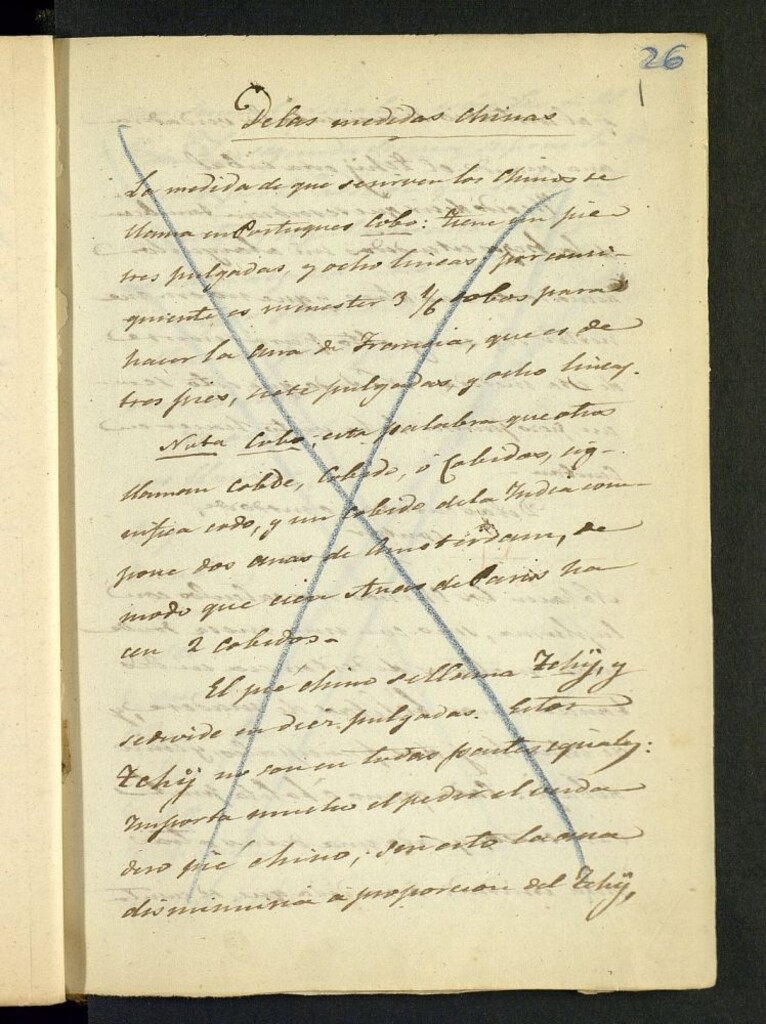 26
De las medidas chinas
La medida de que se sirven los Chinos se
llama en Portugues Cobo: tiene un pie
tres pulgadas, y ocho lineas, por consi-
guiente es menester 3 1/6 cobos para
hacer la ana de Francia, que es de
tres pies, siete pulgadas, y ocho lineas.
Nota Cobo, esta palabra que otros
llaman cobde, Cobido, ó Cobidos, sig-
nifica codo, y un cobido de la India com-
pone dos anas de Amsterdam, de
modo que cien Anas de Paris ha
cen 2 cobidos.
El pie chino se llama Tchÿ, y
se divide en diez pulgadas. Estos
Tchÿ no son en todas partes iguales:
importa mucho el pedir el verda
dero pié chino, sin esto la ana
disminuiria á proporcion del Tchÿ,